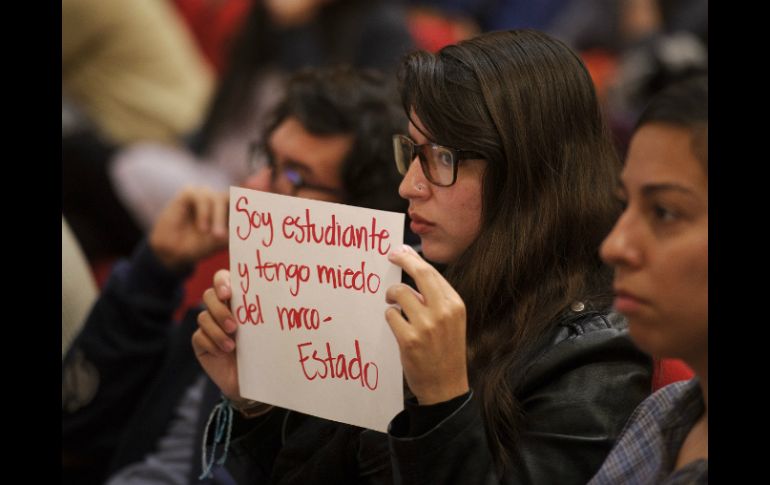 Soy estudiante
y tengo miedo
del narco-
Estado